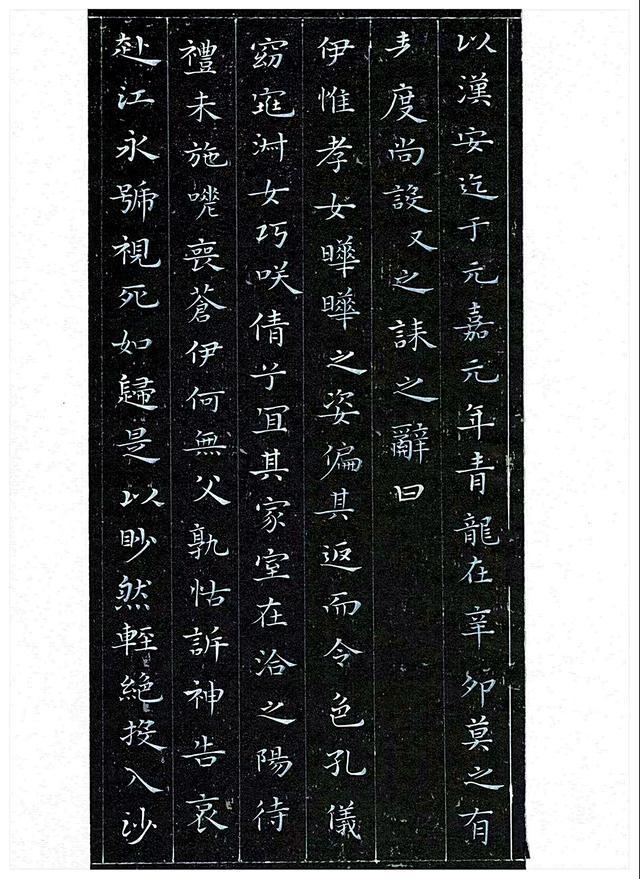 以漢安迄于元嘉元年青龍在辛卯莫之有
表度尚設又之誄之辭曰
伊惟孝女曄曄之姿偏其返而令色孔儀
窈窕淑女巧咲倩兮宜其家室在洽之陽待
禮未施嗟喪蒼伊何無父孰怙訴神告哀
赴江永號視死如歸是以眇然輕絕投入沙